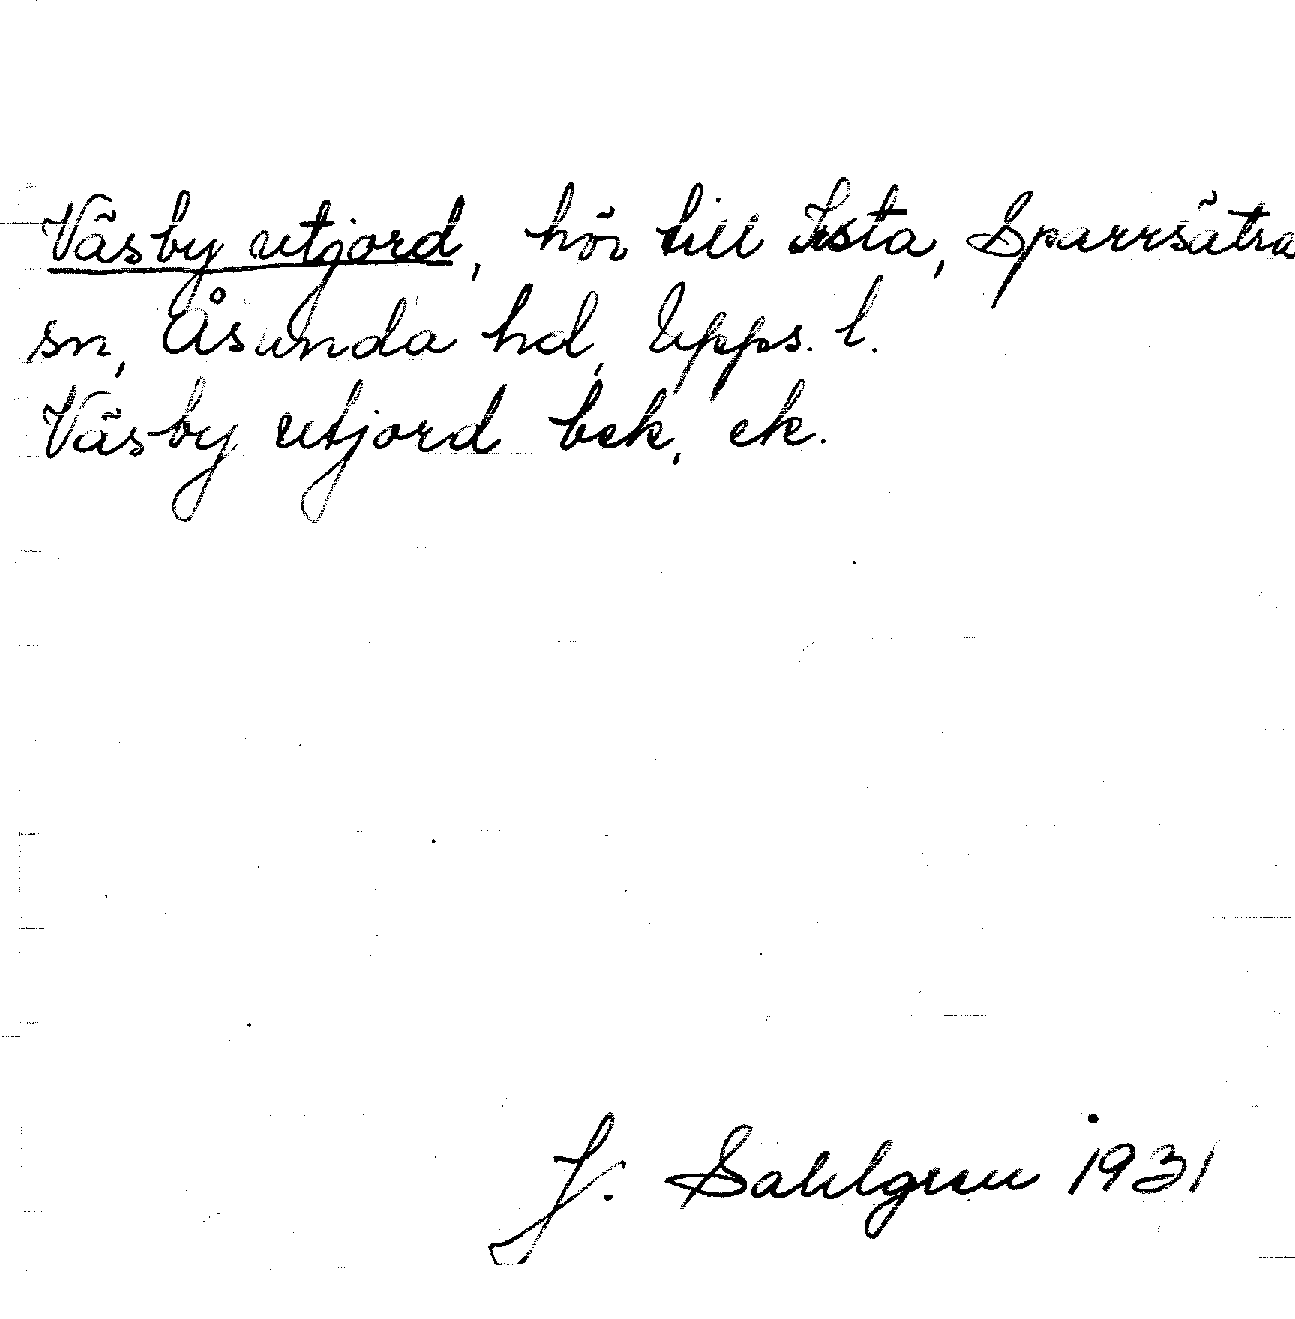 Väsby utjord, hör till Ista, Sparrsätra
sn, Åsunda hd, Upps. l.
Väsby utjord bek, ek.
J. Sahlgren 1931